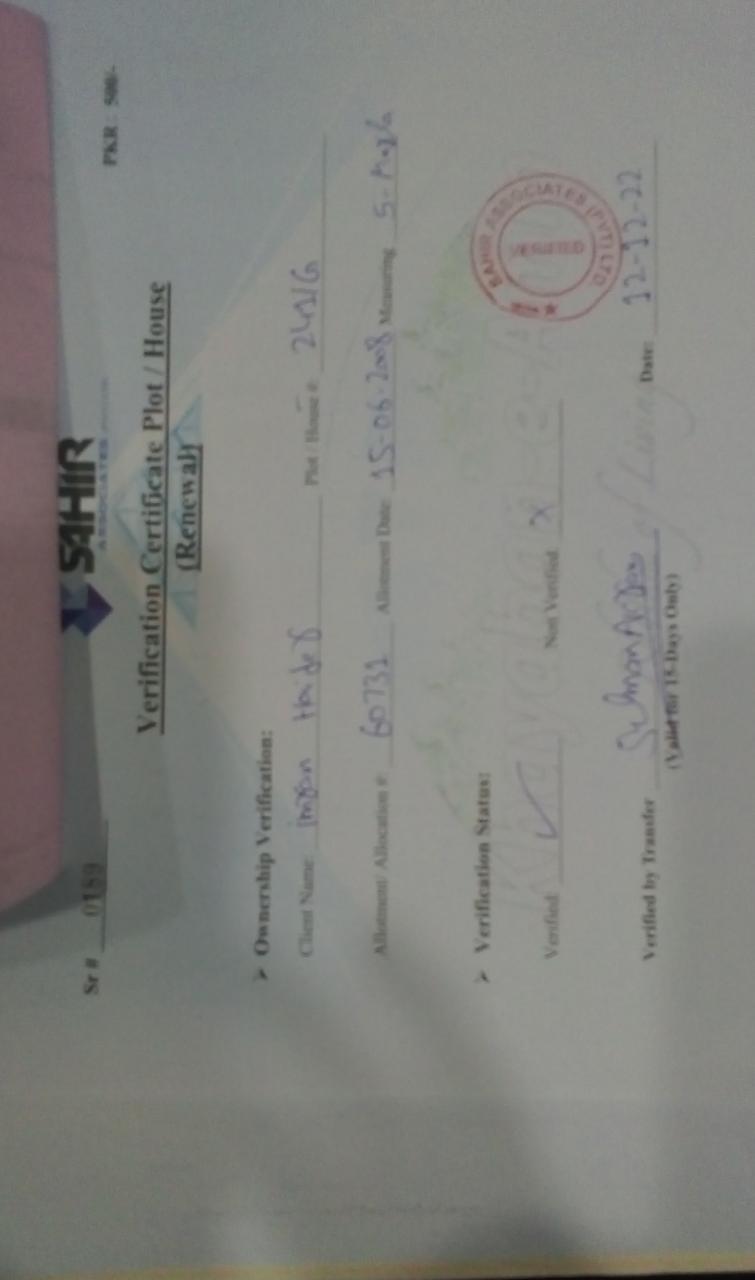 SAHIR
ASSOCIATES
Sr # 0189
PKR : 500/-
Verification Certificate Plot / House
(Renewal)
➤ Ownership Verification:
Client Name: imran Haider Plot / House #: 241/G
Allotment/ Allocation #: 60731 Allotment Date: 15-06-2008 Measuring 5-Marla
➤ Verification Status:
Verified: ✓ Not Verified x
SAHIR ASSOCIATES (PVT) LTD
VERIFIED
Verified by Transfer Date: 12-12-22
(Valid for 15-Days Only)
of Living